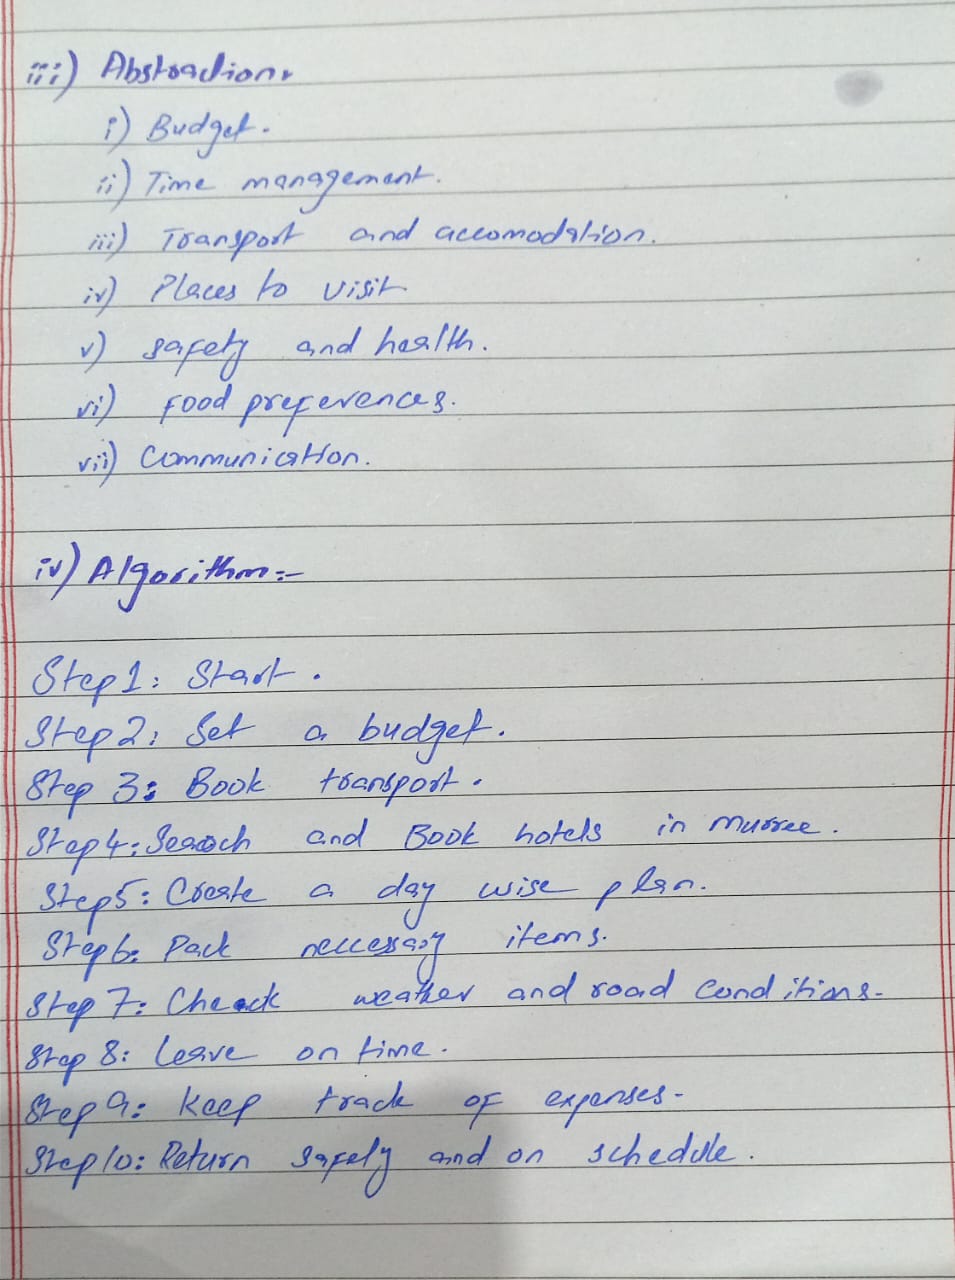 iii) Abstraction:
i) Budget.
ii) Time management.
iii) Transport and accomodation.
iv) Places to visit
v) safety and health.
vi) Food preferences.
vii) Communication.
iv) Algorithm:-
Step 1: Start.
Step 2: Set a budget.
Step 3: Book transport.
Step 4: Search and Book hotels in murree.
Step 5: Create a day wise plan.
Step 6: Pack neccessary items.
Step 7: Check weather and road conditions.
Step 8: Leave on time.
Step 9: Keep track of expenses.
Step 10: Return safely and on schedule.